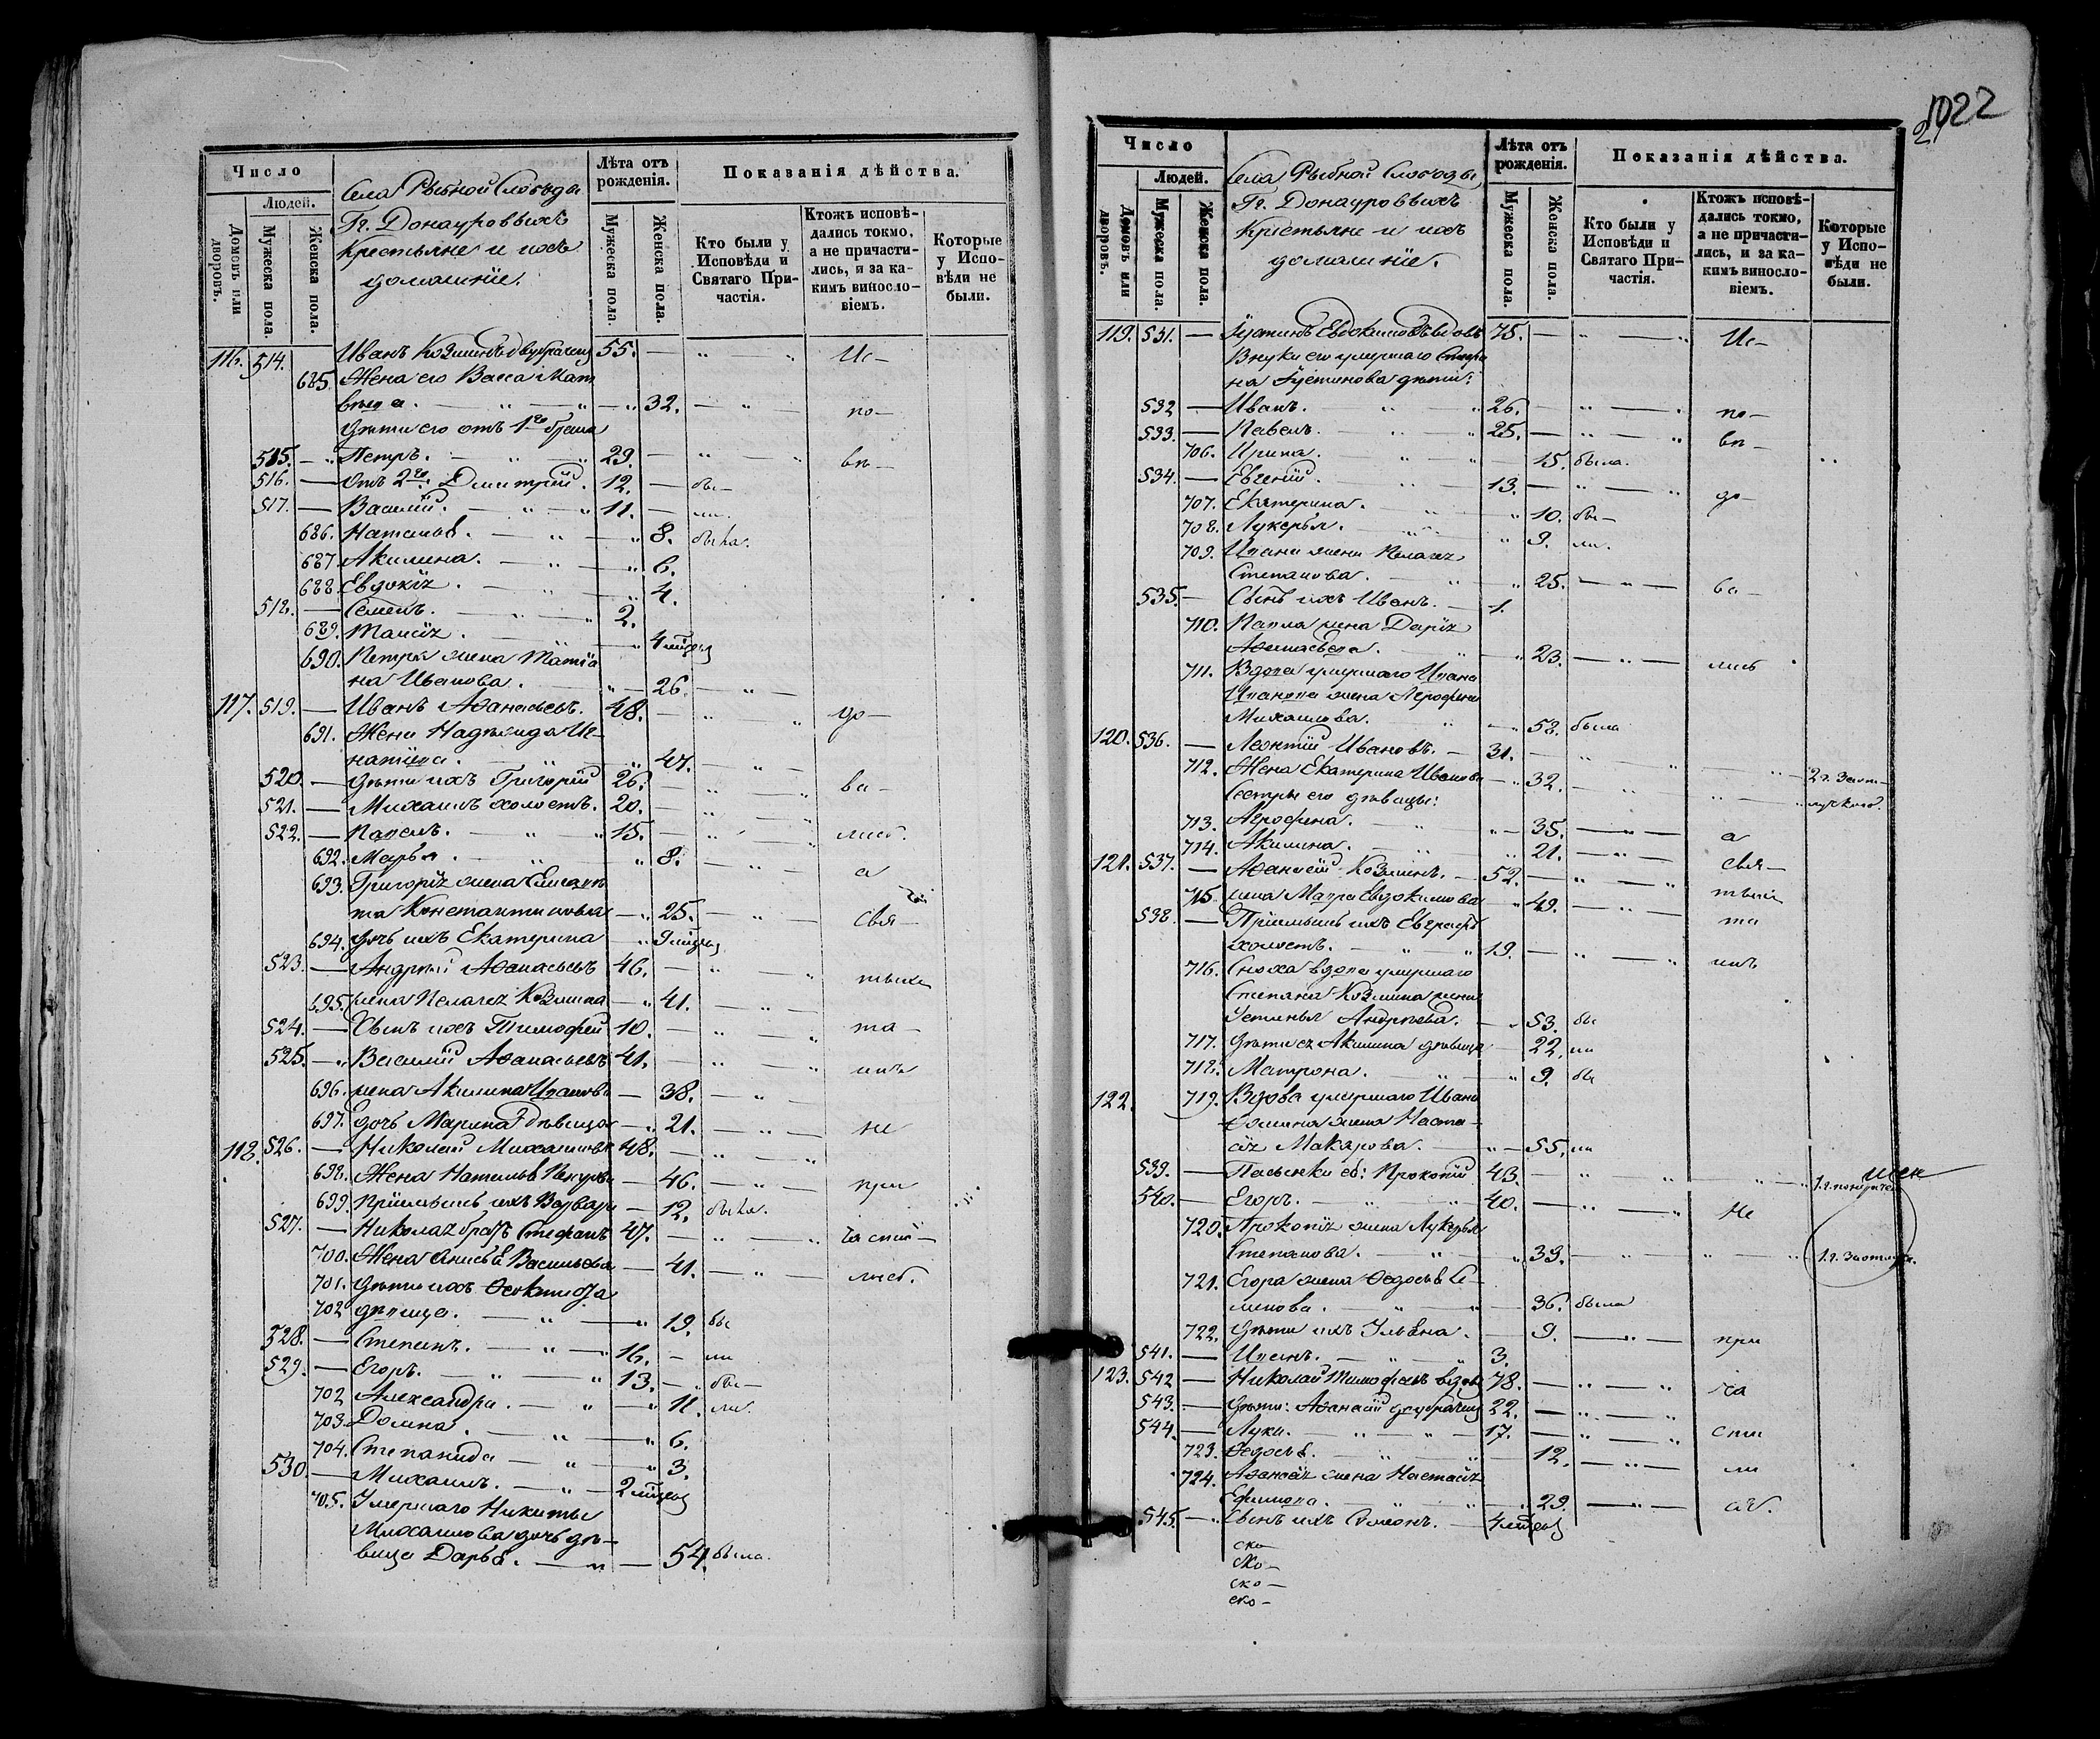 1022
2
Число
Людей.
Домовъ или дворовъ.
Мужеска пола
Женска пола.
Села Рыбной Слободы
Гг. Донауровыхъ
Крестьяне и ихъ
домашніе.
Лѣта отъ рожденія.
Мужеска пола.
Женска пола.
Показанія дѣйства.
Кто были у Исповѣди и Святаго Причастія.
Ктожъ исповѣдались токмо, а не причастились, и за какимъ винословіемъ.
Которые у Исповѣди не были.
116. 514. Иванъ Козминъ двубрачный 55. Ис-
685. Жена его Васса Мат
вѣева. 32. по-
Дѣти его отъ 1го брака
515. Петръ. 29. вѣ-
516. Отъ 2го Димитрий. 12. бы-
517. Василий. 11. ли.
686. Наталья. 8. была.
687 Акилина. 6.
688 Евдокія. 4.
518. Семенъ. 2.
689. Таисія. 4 мѣсяц
690. Петра жена Татіа
на Иванова. 26.
117. 519. Иванъ Аѳанасьевъ. 48. до-
691. Жена Надежда Иг-
натіева. 47.
520. Дѣти ихъ Григорій 26. ва-
521. Михаилъ холостъ. 20.
522. Павелъ. 15. лись.
692. Марья. 8. а
693. Григорія жена Елисаве
та Константинова 25. Свя-
694. Дочь ихъ Екатерина 9 мѣсяц
523. Андрей Аѳанасьевъ 46. тыхъ
695. жена Пелагея Козмина 41.
524. Сынъ ихъ Тимофей 10. та-
525. Василий Аѳанасьевъ 41. инъ
696. жена Акилина Иванова 38.
697. дочь Марина дѣвица 21. не
118. 526. Николай Михаиловъ 48.
698. Жена Наталья 46. при
699. Пріемышъ ихъ Варвара 12. была.
527. Николая братъ Стефанъ 47. частій-
700. Жена Анисья Васильева 41. лись.
701. Дѣти ихъ Ѳеоктиста
702 дѣвица. 19. бы
528. Степанъ. 16. ли
529. Егоръ. 13. бы-
702 Александра. 11. ли.
703. Домна. 6.
704. Степанида 3.
530. Михаилъ. 2 мѣсяц
705. Умершаго Никиты
Михаилова дочь дѣ-
вица Дарья. 54. была.
Число
Людей.
Домовъ или дворовъ.
Мужеска пола
Женска пола.
Села Рыбной Слободы
Гг. Донауровыхъ
Крестьяне и ихъ
домашніе.
Лѣта отъ рожденія.
Мужеска пола.
Женска пола.
Показанія дѣйства.
Кто были у Исповѣди и Святаго Причастія.
Ктожъ исповѣдались токмо, а не причастились, и за какимъ винословіемъ.
Которые у Исповѣди не были.
119. 531. Іустинъ Евдокимовъ вдовъ 75. Ис-
Внуки его умершаго
на Іустинова дѣти:
532 Иванъ. 26. по-
533. Павелъ. 25. вѣ-
706. Ирина. 15. была.
534. Евгений. 13. до-
707. Екатерина. 10. бы-
708. Лукерья. 9. ли.
709. Ивана жена Пелагея
Степанова. 25. ва-
535. Сынъ ихъ Иванъ. 1.
710. Павла жена Дарія
Аѳанасьева. 23. лись
711. Вдова умершаго Ивана
Иванова жена Агрофена
Михаилова. 58. была
120. 536. Леонтий Ивановъ. 31.
712. Жена Екатерина Иванова 32.
Сестры его дѣвицы:
713. Агрофена. 35. а
714. Акилина. 21. свя-
121. 537. Аѳанасій Козминъ. 52. тыхъ
715 жена Мавра Евдокимова 49. та
538. Пріемышъ ихъ Евграфъ
холостъ. 19. инъ
716. Сноха вдова умершаго
Степана Козмина жена
Устинья Андреева. 53. бы
717. Дѣти ея Акилина дѣвица 22. ли
718. Матрона. 9. бы
122. 719. Вдова умершаго Ивана
жена Наста-
сія Макарова. 55. ли
539. Пасынки ея: Прокопій 43.
540. Егоръ. 40. Не
720. Прокопія жена Лукерья
Степанова. 39.
721. Егора жена Ѳедосья Се-
менова. 36. была
722. Дѣти ихъ Ульяна. 9. при
541. Иванъ. 3.
123. 542 Николай Тимофеевъ вдовъ 78. ча
543. Дѣти: Аѳанасій двубрачный 22.
544. Лука. 17. сти
723. Ѳедосья. 12. ли
724. Аѳанасія жена Настасія
Ефимова. 29. сь.
545. Сынъ ихъ Симеонъ. 4 мѣсяц
ско-
ско-
ско-
ско-